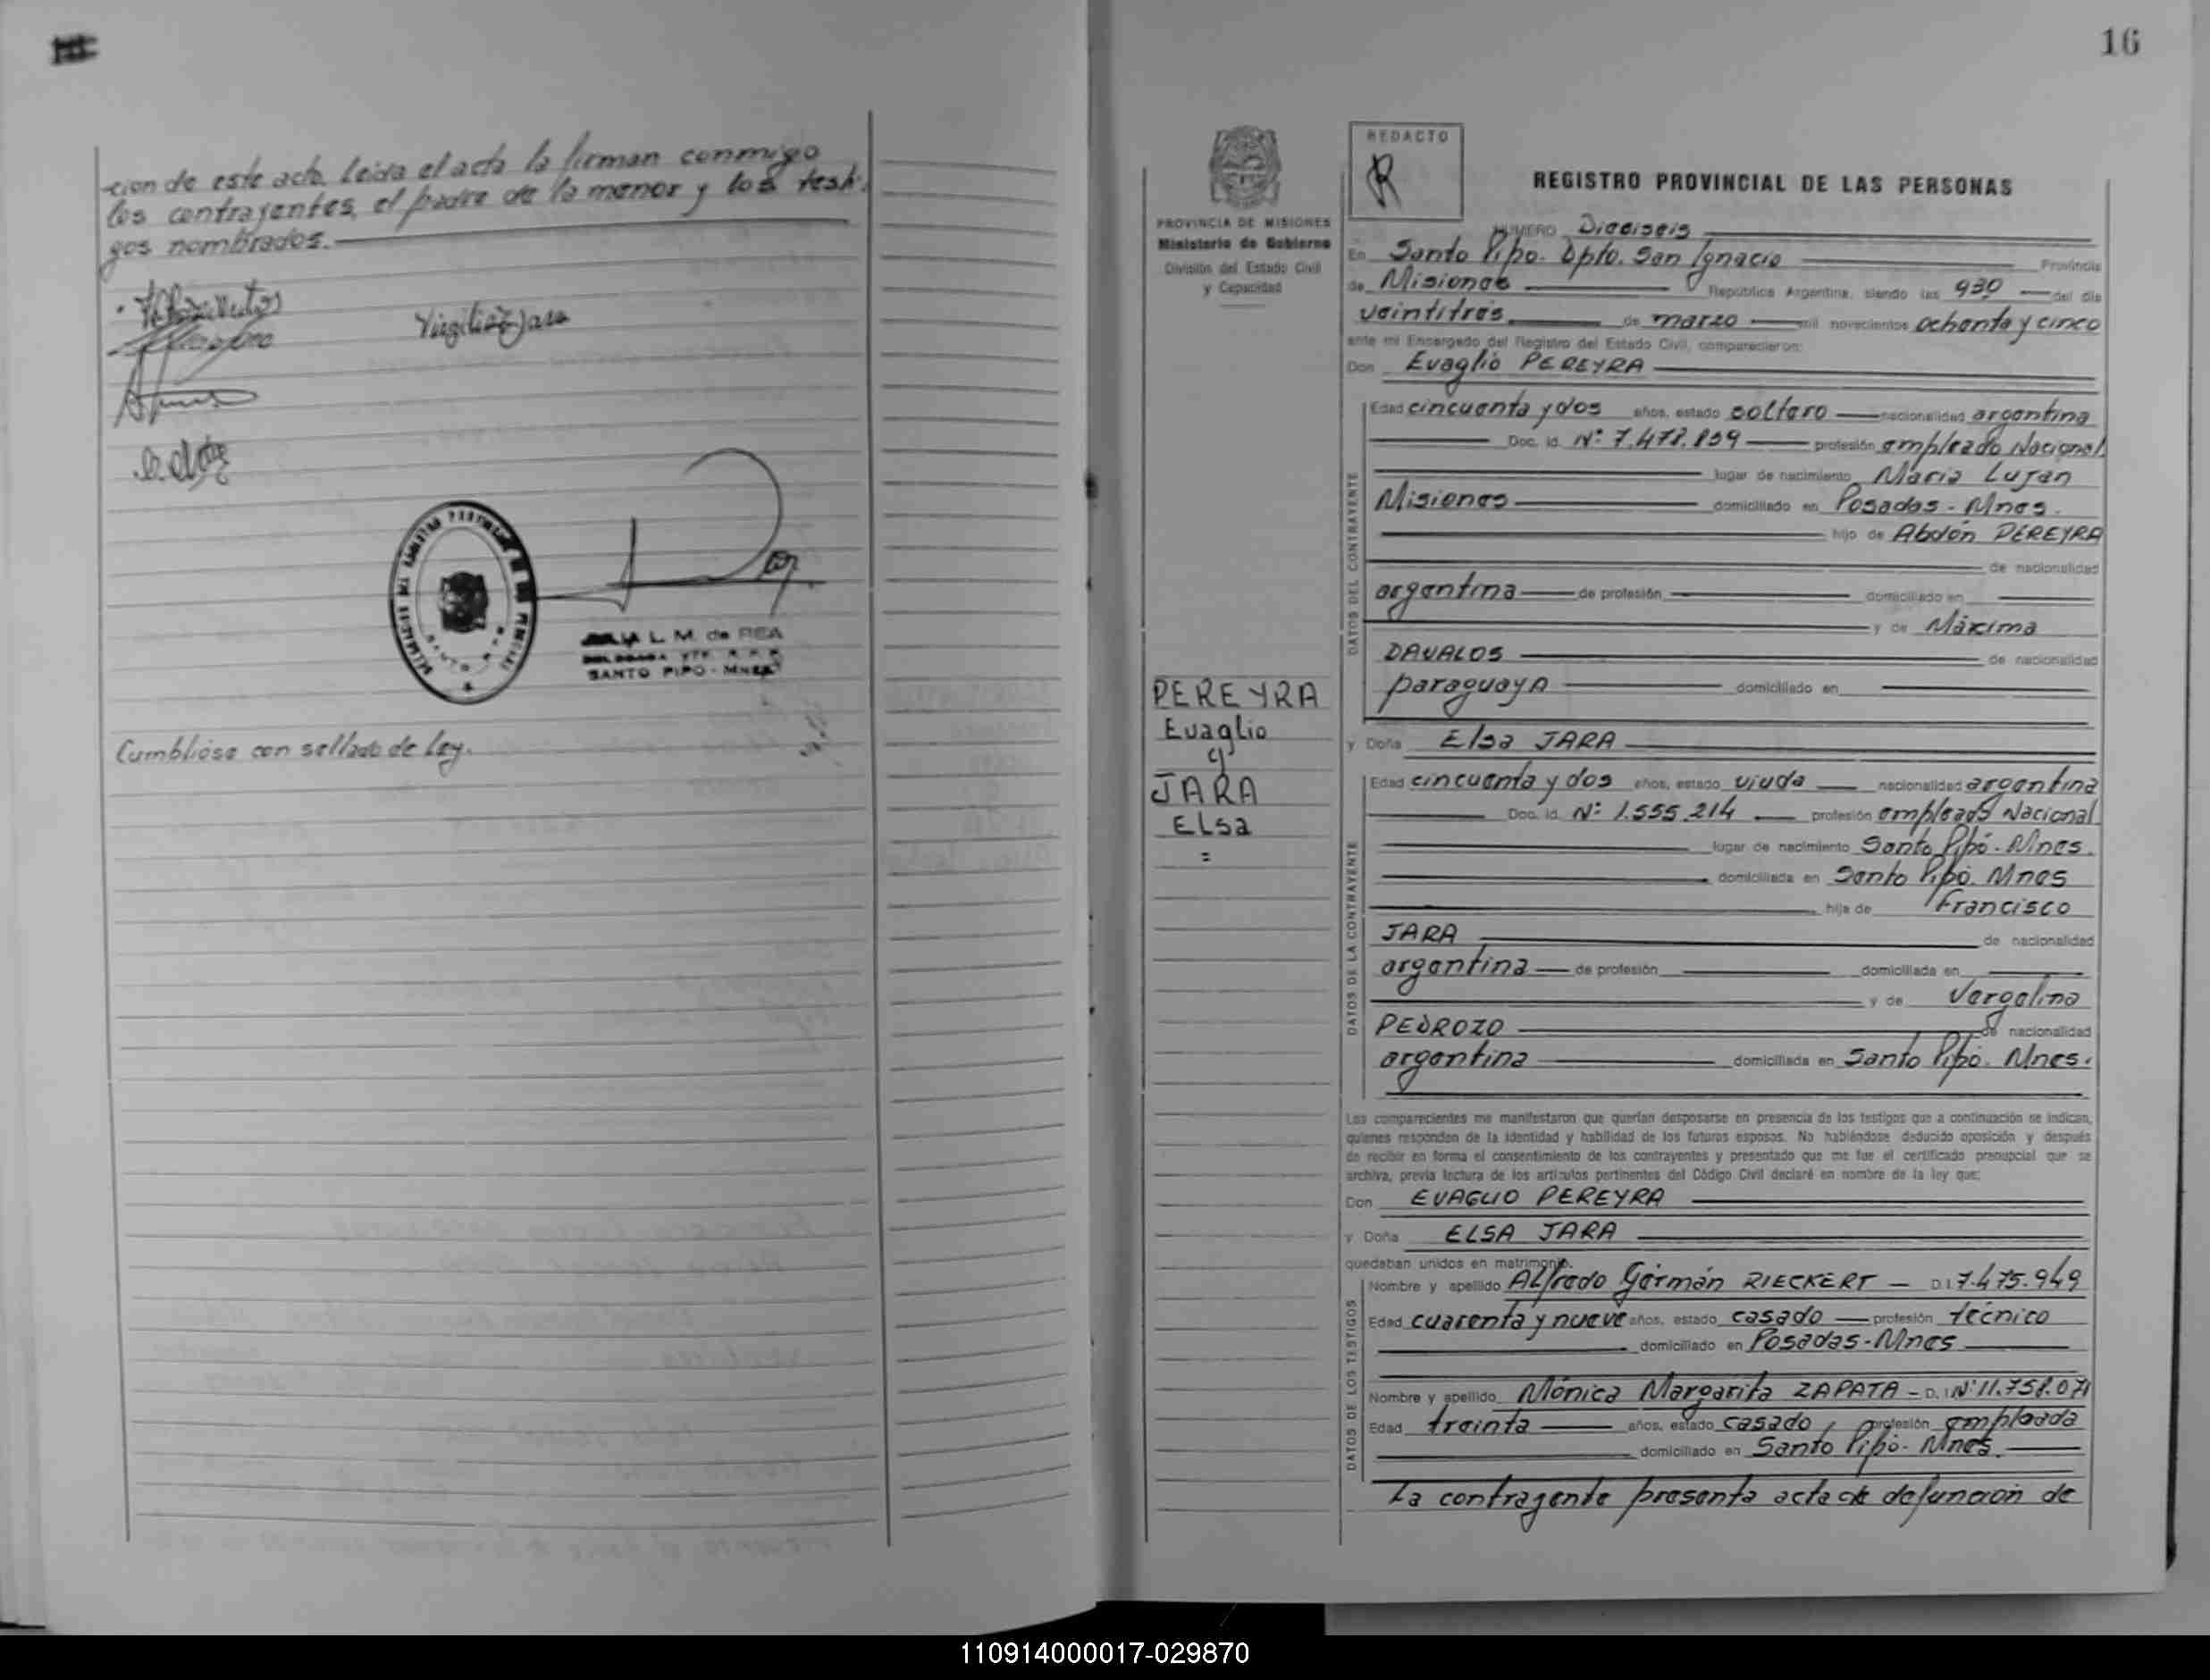 -cion de este acto. Leida el acta la firman conmigo
los contrayentes, el padre de la menor y los testi-
gos nombrados.
Virgilio Jara
JULIA L. M. de REA
SANTO PIPO - MNES
Cumblióse con sellado de Ley.
16
PROVINCIA DE MISIONES
Ministerio de Gobierno
División del Estado Civil
y Capacidad
PEREYRA
Evaglio
y
JARA
Elsa
=
REDACTO
REGISTRO PROVINCIAL DE LAS PERSONAS
NUMERO Dieciseis
En Santo Pipo. Dpto. San Ignacio Provincia
de Misiones República Argentina, siendo las 930 del día
veintitres de marzo mil novecientos ochenta y cinco
ante mi Encargado del Registro del Estado Civil, comparecieron:
Don Evaglio PEREYRA
DATOS DEL CONTRAYENTE
Edad cincuenta y dos años, estado soltero nacionalidad argentina
Doc. Id. Nº 7.478.859 profesión empleado Nacional
lugar de nacimiento Maria Lujan
Misiones domiciliado en Posadas - Mnes.
hijo de Abdón PEREYRA
de nacionalidad
argentina de profesión domiciliado en
y de Máxima
DAVALOS de nacionalidad
paraguaya domiciliado en
y Doña Elsa JARA
DATOS DE LA CONTRAYENTE
Edad cincuenta y dos años, estado viuda nacionalidad argentina
Doc. Id. Nº 1.555.214 profesión empleada Nacional
lugar de nacimiento Santo Pipó - Mnes.
domiciliada en Santo Pipó. Mnes
hija de Francisco
JARA de nacionalidad
argentina de profesión domiciliada en
y de Vergelina
PEDROZO de nacionalidad
argentina domiciliada en Santo Pipó. Mnes.
Los comparecientes me manifestaron que querían desposarse en presencia de los testigos que a continuación se indican,
quienes responden de la identidad y habilidad de los futuros esposos. No habiéndose deducido oposición y después
de recibir en forma el consentimiento de los contrayentes y presentado que me fue el certificado prenupcial que se
archiva, previa lectura de los artículos pertinentes del Código Civil declaré en nombre de la ley que:
Don EVAGLIO PEREYRA
y Doña ELSA JARA
quedaban unidos en matrimonio.
DATOS DE LOS TESTIGOS
Nombre y apellido Alfredo Germán RIECKERT - D.I 7.475.949
Edad cuarenta y nueve años, estado casado profesión técnico
domiciliado en Posadas - Mnes
Nombre y apellido Mónica Margarita ZAPATA - D.I Nº 11.758.071
Edad treinta años, estado casado profesión empleada
domiciliado en Santo Pipó - Mnes.
La contrayente presenta acta de defuncion de
110914000017-029870